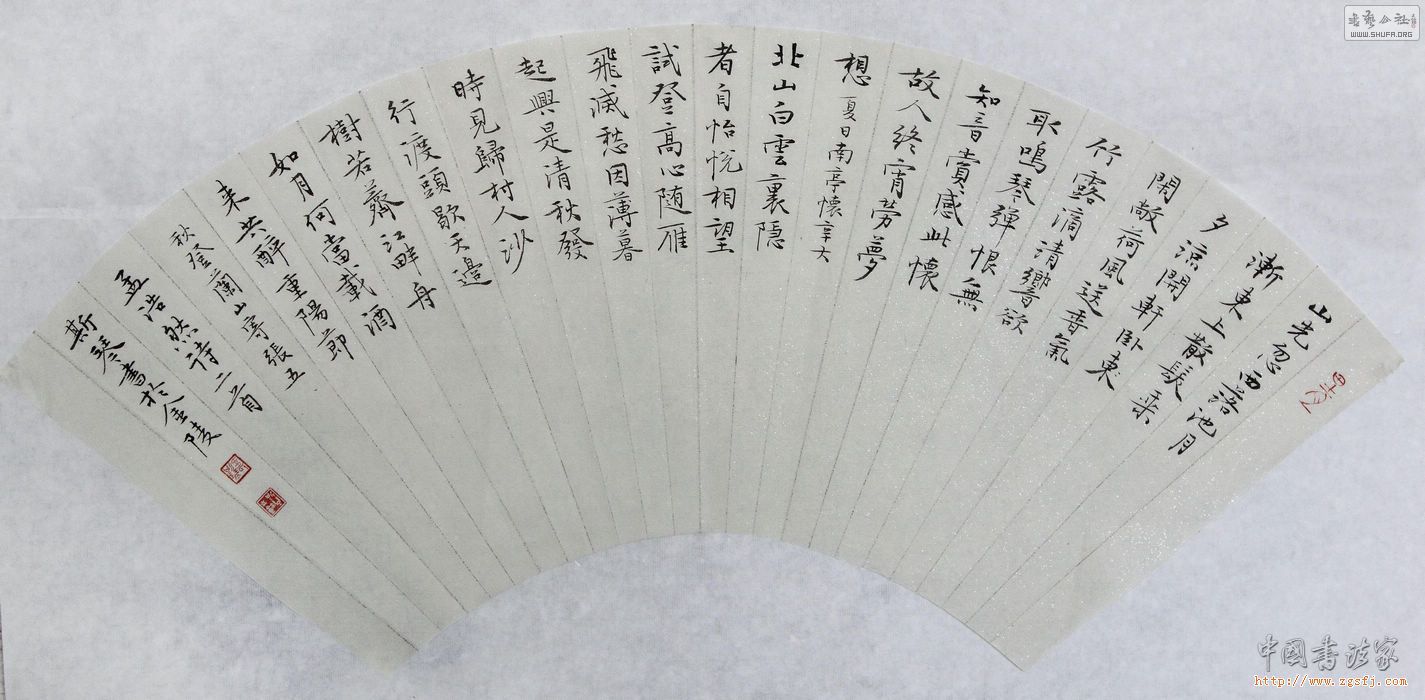 山光忽西落池月
漸東上散髮乘
夕涼開軒卧東
閑敞荷風送香氣
竹露滴清響欲
取鳴琴彈恨無
知音賞感此懷
故人終宵勞夢
想 夏日南亭懷辛大
北山白雲裏隱
者自怡悅相望
試登高心随雁
飛滅愁因薄暮
起興是清秋發
時見歸村人沙
行渡頭歇天邊
樹若薺江畔舟
如月何當載酒
来共醉重陽節
秋登蘭山寄張五
孟浩然詩二首
斯琴書於金陵
書藝公社
WWW.SHUFA.ORG
中国书法家
http://www.zgsfj.com